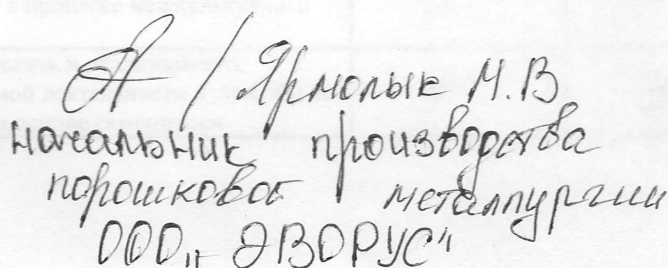 / Ярмолык М.В
начальник производства
порошковой металлургии
ООО „ ЭВОРУС"